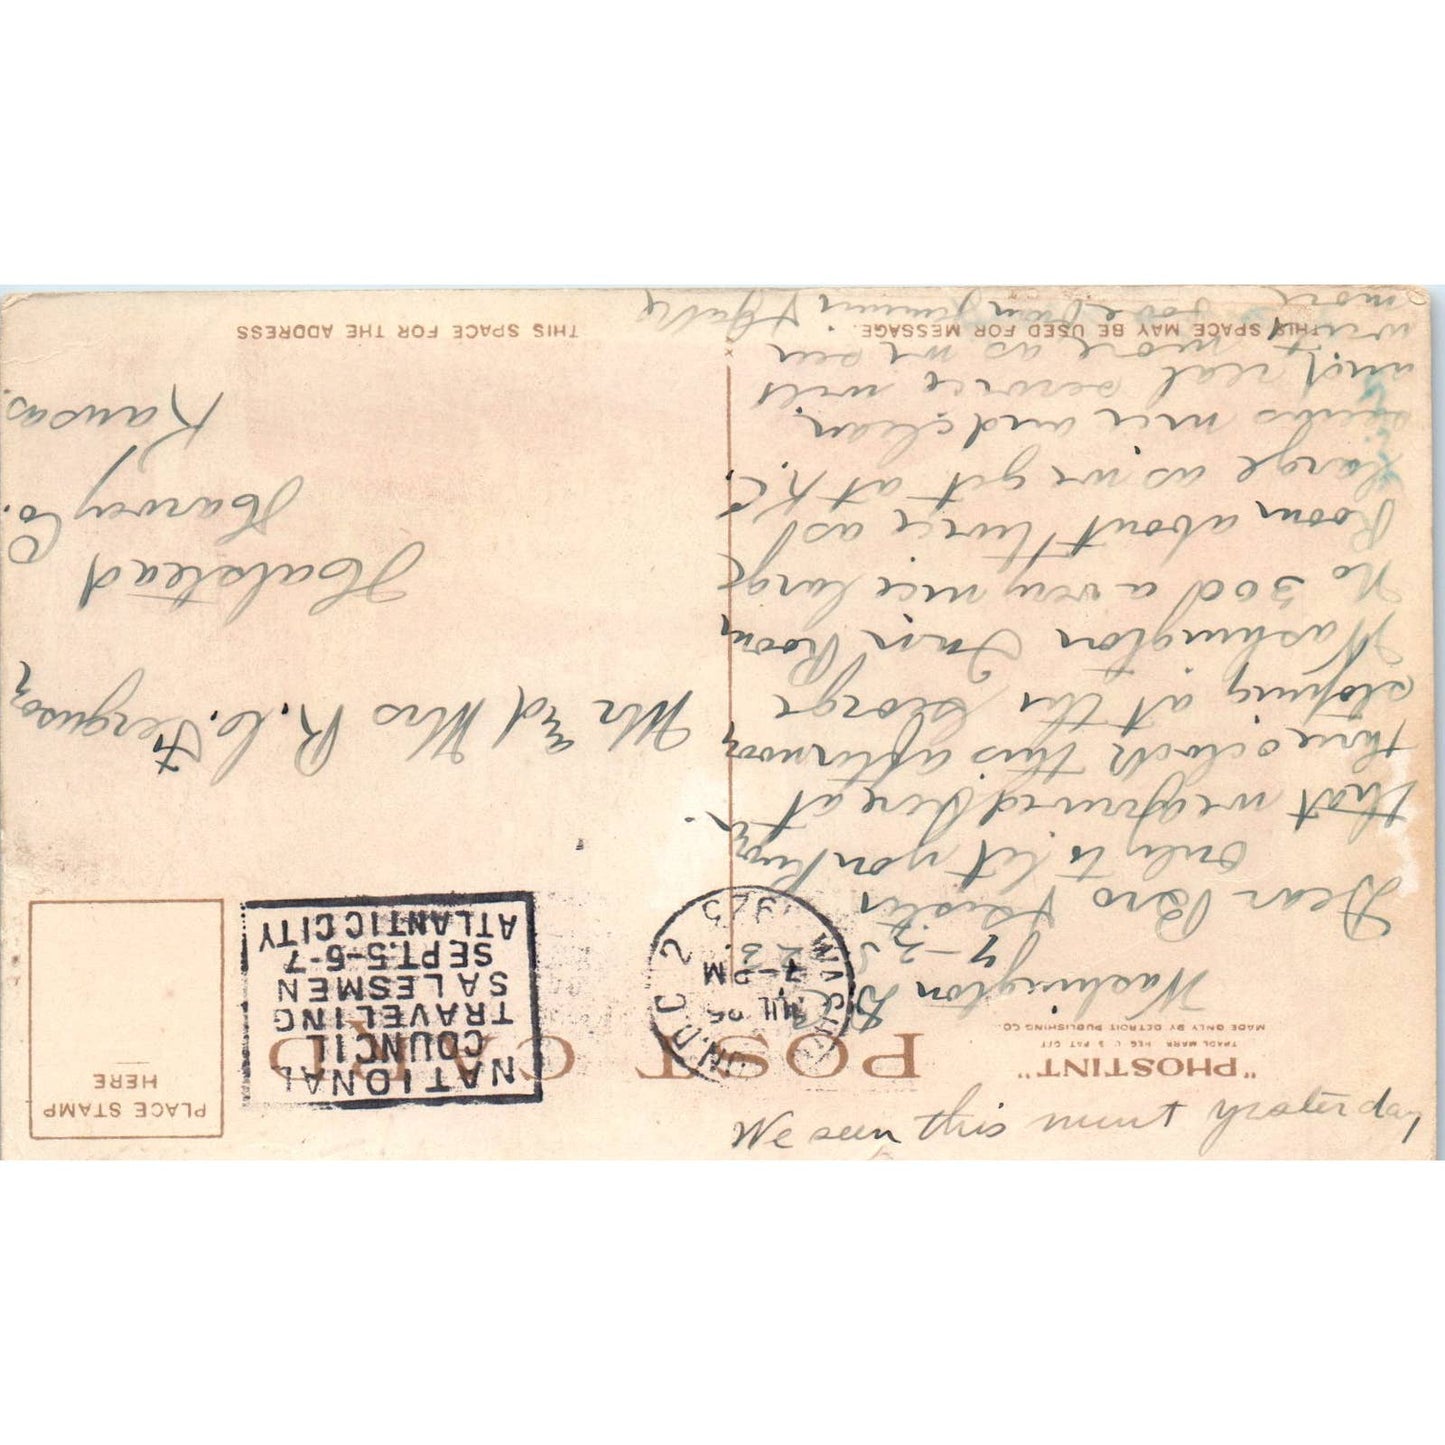 We seen this mint yesterday
"PHOSTINT"
TRADE MARK REG. U. S. PAT. OFF.
MADE ONLY BY DETROIT PUBLISHING CO.
POST CARD
PLACE STAMP
HERE
WASHINGTON, D.C. 2
JUL 25
7-PM
1925
NATIONAL
COUNCIL
TRAVELING
SALESMEN
SEPT.5-6-7
ATLANTIC CITY
Washington D.C.
7-25
Dear Bro & Sister
Only to let you know
that we arrived here at
three oclock this afternoon
stoping at the George
Washington Inn Room
No 300 a very nice large
Room about twice as
large as we get at K.C.
seems nice and clean
and real service will
write more as we see
more love from
Mr and Mrs R. C. Ferguson
Halstead
Harvey Co.
Kansas.
THIS SPACE MAY BE USED FOR MESSAGE.
THIS SPACE FOR THE ADDRESS